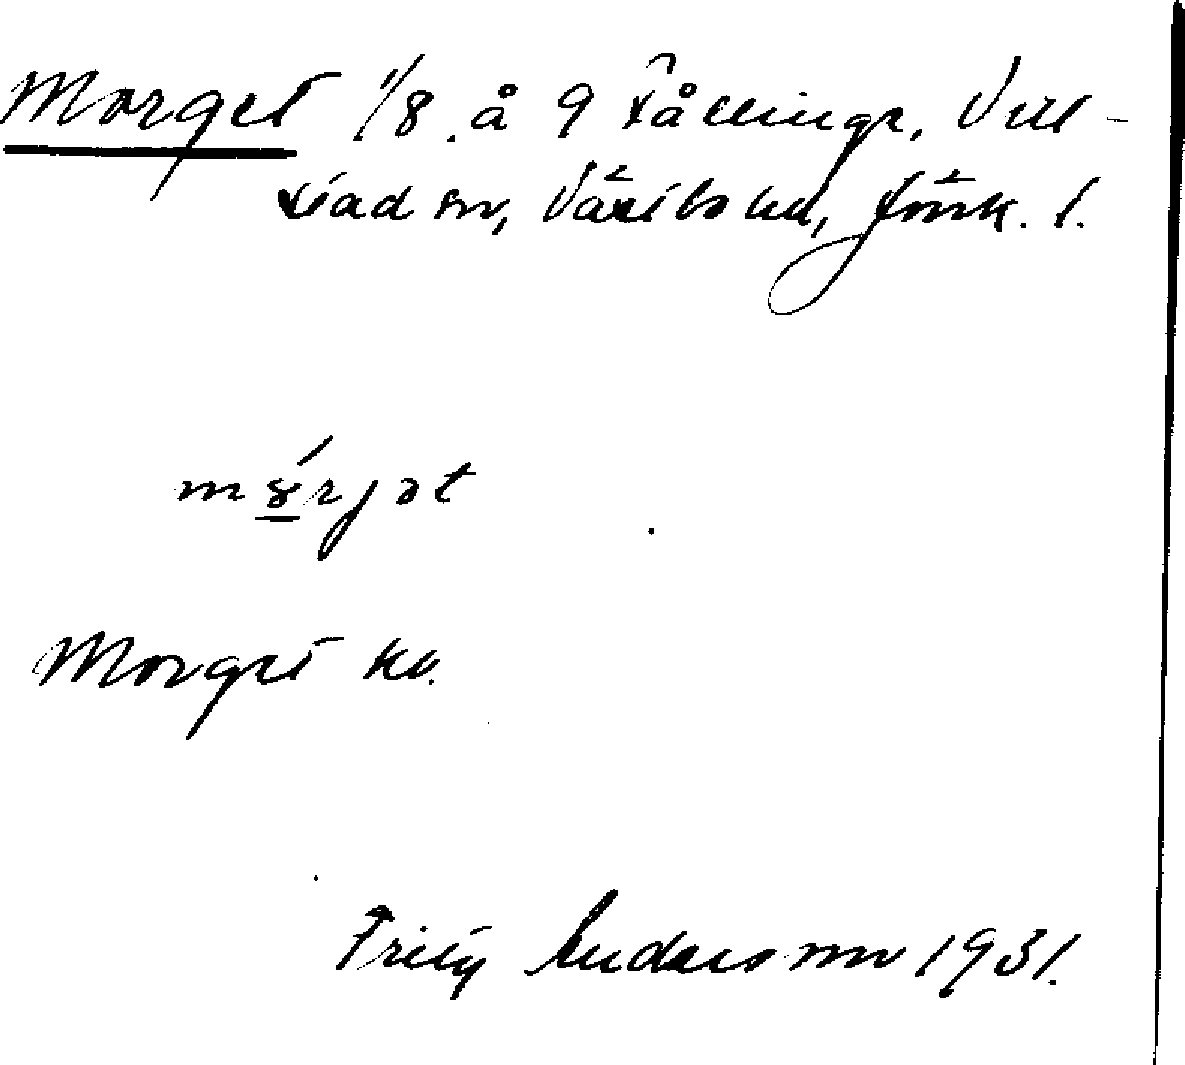 Morget 1/8 å 9 Tållinge, Vill-
stad sn, Västbo hd, Jönk. l.
mɤ́rjət
Morget kv.
Fritz Andersson 1931.